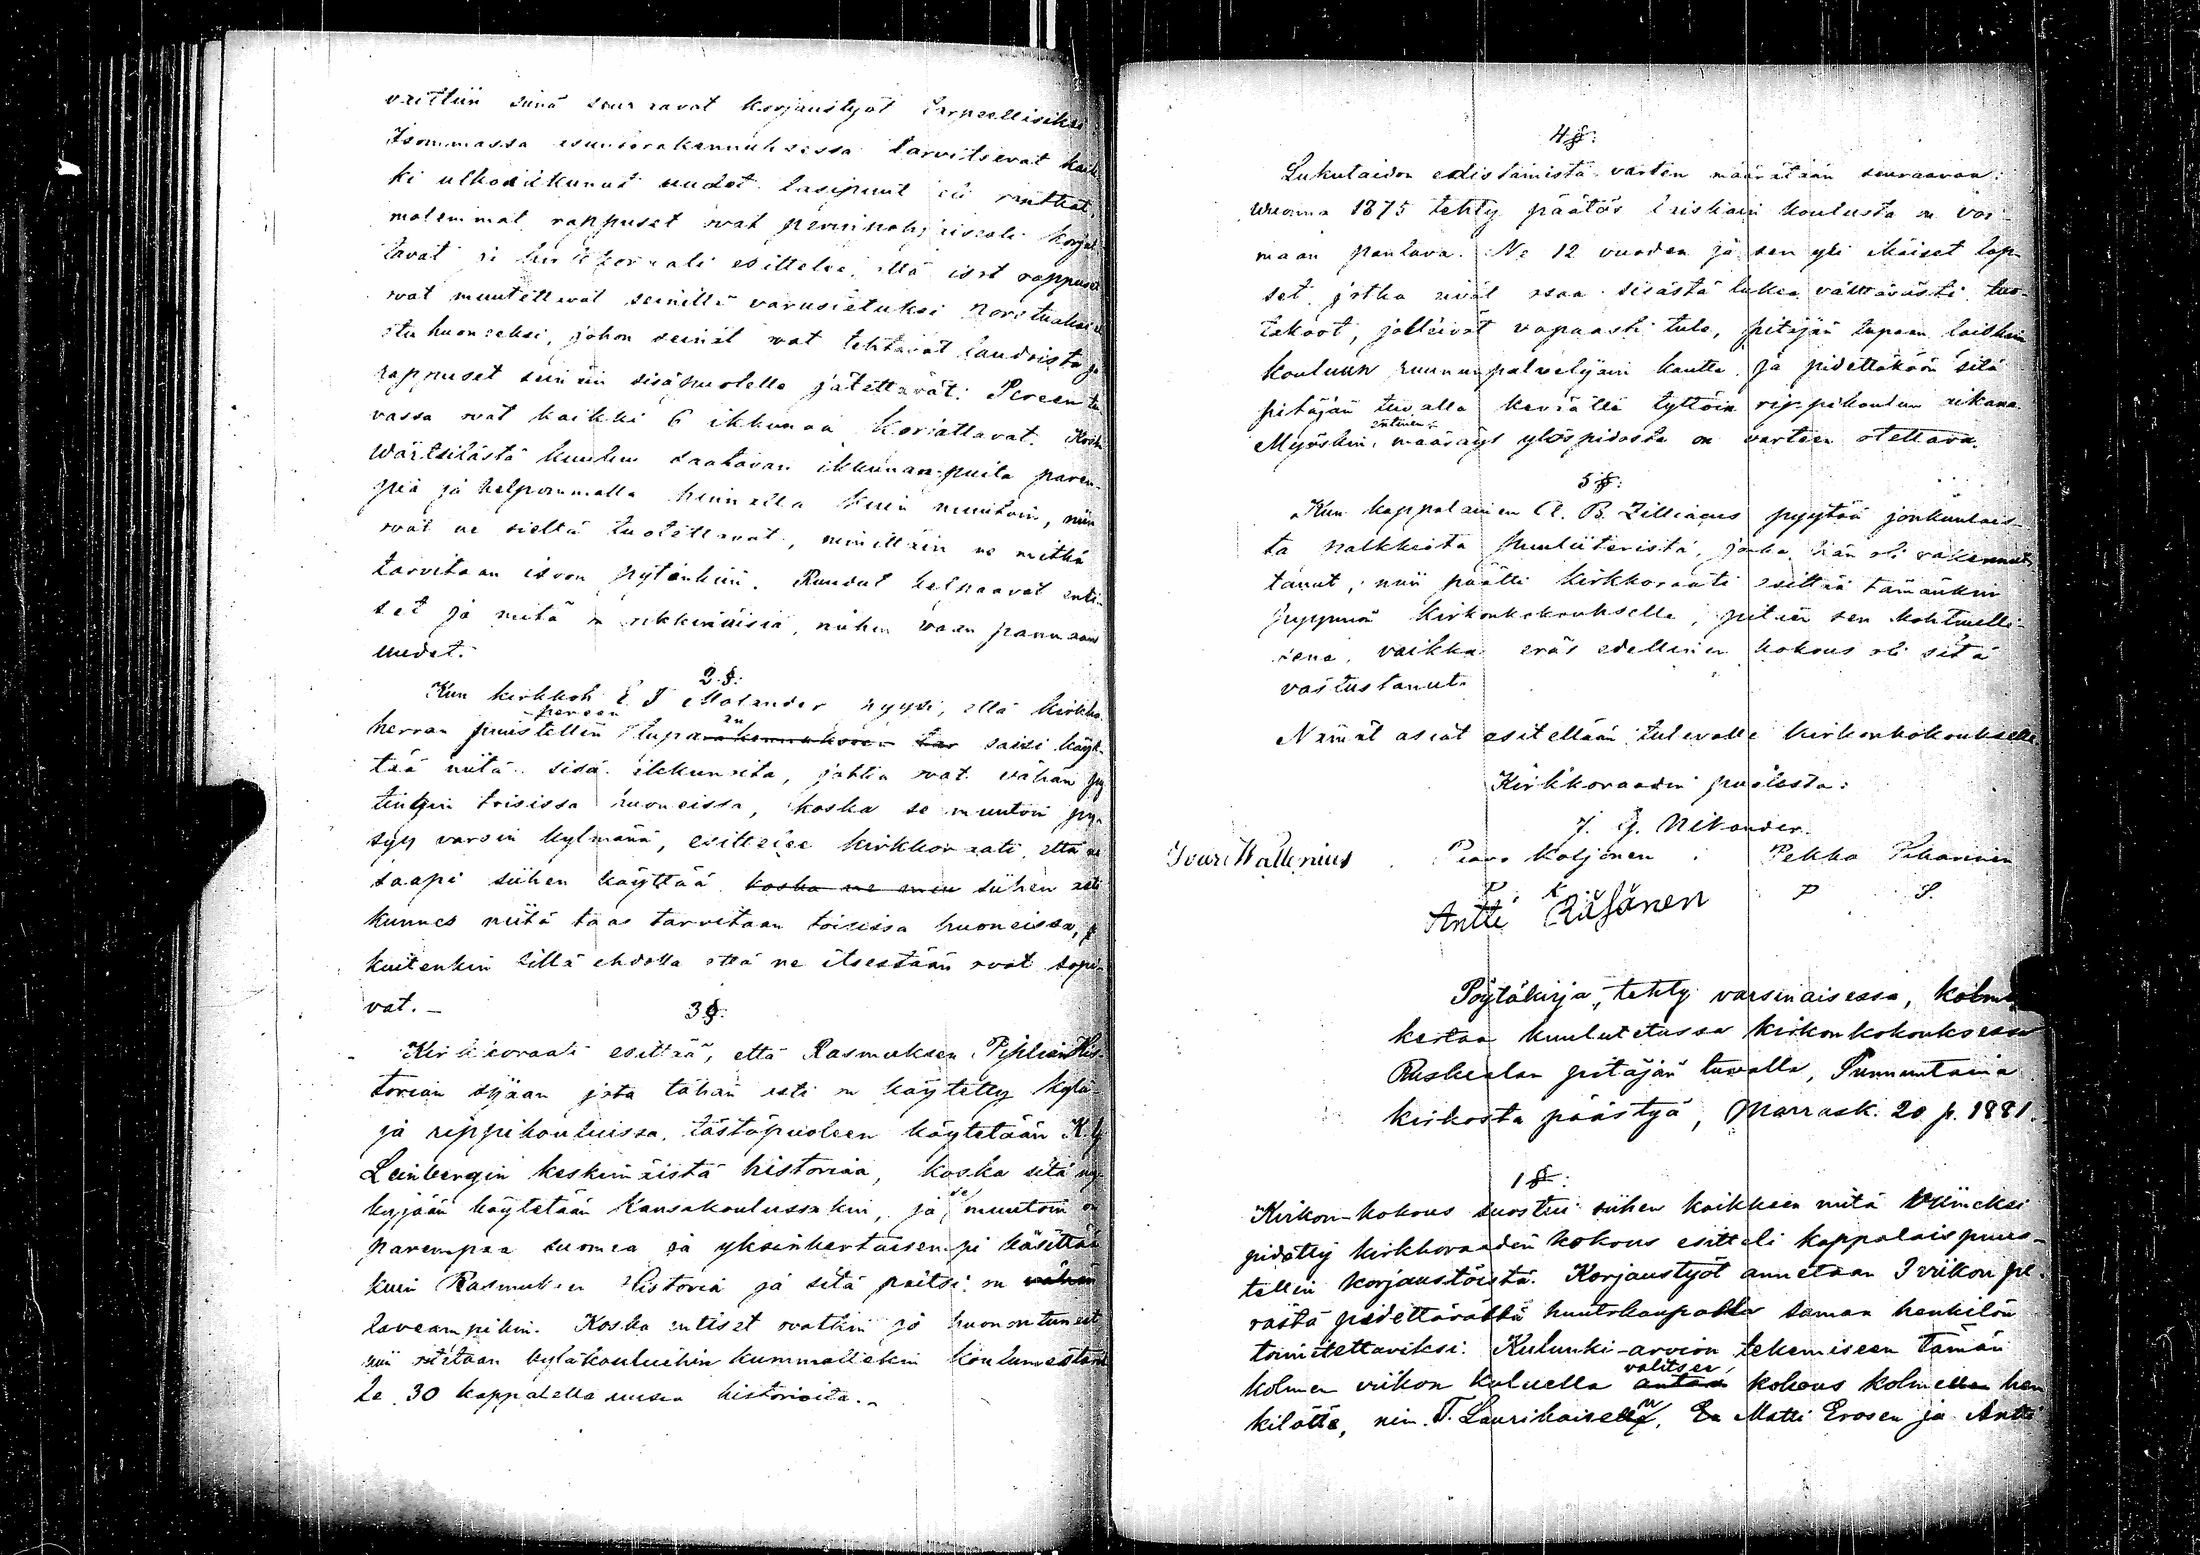 vaittiin siinä seuraavat korjaustyöt tarpeellisiksi:
Isommassa asuinrakennuksessa tarvitsevat kaik-
ki ulkoikkunat uudet lasipuut eli
molemmat rappuset ovat perinpohjaisesti korjat-
tavat ja kirkkoraati esittelee, että isot rappuset
ovat muutettavat seinillä varustetuksi
huoneeksi, johon seinät ovat tehtävät laudoista ja
rappuset seinäin sisäpuolelle jätettävät. Pereen tu
vassa ovat kaikki 6 ikkunaa korjattavat. Koska
Wärtsilästä kuuluu saatavan ikkunan-puita parem-
pia ja helpommalla hinnalla kuin muutoin, niin
ovat ne sieltä tuotettavat, nimittäin ne mitkä
tarvitaan isoon pytinkiin. Ruudut kelpaavat enti-
set ja mitä on rikkinäisiä, niihin vaan pannaan
uudet.
2 §:
Kun kirkkoh. E. J. Molander pyysi, että kirkko-
herran puustellin pereen tupaan rakennukseen saisi käyt-
tää niitä sisä-ikkunoita, jotka ovat vähän py
tingin toisissa huoneissa, koska se muutoin py-
syy varsin kylmänä, esittelee kirkkoraati, että ne
saapi siihen käyttää koska ne siihen asti
kunnes niitä taas tarvitaan toisissa huoneissa,
kuitenkin sillä ehdolla että ne itsestään ovat sopi-
vat. –
3 §:
Kirkkoraati esittää, että Rasmuksen Piplian His-
torian sijaan jota tähän asti on käytetty kylä-
ja rippikouluissa, tästäpuoleen käytetään K. G.
Leinbergin keskimäistä historiaa, koska sitä ny-
kyjään käytetään Kansakoulussakin, ja se muutoin on
parempaa suomea ja yksinkertaisempi käsittää
kuin Rasmuksen Historia ja sitä paitsi on vähän
laveampikin. Koska entiset ovatkin jo huonontuneet,
niin ostetaan kyläkouluihin kummallekin koulumestaril
le 30 kappaletta uusia historioita. –
4 §:
Lukutaidon edistämistä varten määrätään seuraavaa:
Wuonna 1875 tehty päätös laiskain koulusta on voi-
maan pantava. Ne 12 vuoden ja sen yli ikäiset lap-
set, jotka eivät osaa sisästä lukea välttävästi, tuo-
takoot, jolleivät vapaasti tule, pitäjän tupaan laiskain
kouluun ruununpalvelijain kautta, ja pidettäköön sitä
pitäjän tuvalla keväällä tyttöin rippikoulun aikana.
Myöskin entinen määräys ylöspidosta on varteen otettava.
5 §:
Kun kappalainen A. B. Zilliacus pyytää jonkunlais-
ta palkkiota puuliiteristä, jonka hän oli rakennut-
tanut, niin päätti kirkkoraati esittää tämänkin
pyynnön kirkonkokoukselle, pitäen sen kohtuulli-
sena, vaikka eräs edellinen kokous oli sitä
vastustanut.
Nämät asiat esitellään tulevalle kirkonkokoukselle
Kirkkoraadin puolesta:
J. G. Nikander.
Iivari Wallenius Paavo Koljonen Pekka Pekarinen
P. K. P S.
Antti Räsänen
Pöytäkirja, tehty varsinaisessa, kolme
kertaa kuulutetussa kirkonkokouksessa
Ruskealan pitäjän tuvalla, Sunnuntaina
kirkosta päästyä, Marrask. 20 p. 1881.
1 §:
Kirkon-kokous suostui siihen kaikkeen mitä viimeksi
pidetty kirkkoraadin kokous esitteli kappalaispuus-
tellin korjaustöistä. Korjaustyöt annetaan 3 viikon pe-
rästä pidettävällä huutokaupalla saman henkilön
toimitettaviksi. Kulunki-arvion tekemiseen tämän
kolmen viikon kuluella valitsee antaa kokous kolme hen
kilöttä, nim. T. Laurikaisen, Matti Erosen ja Antti